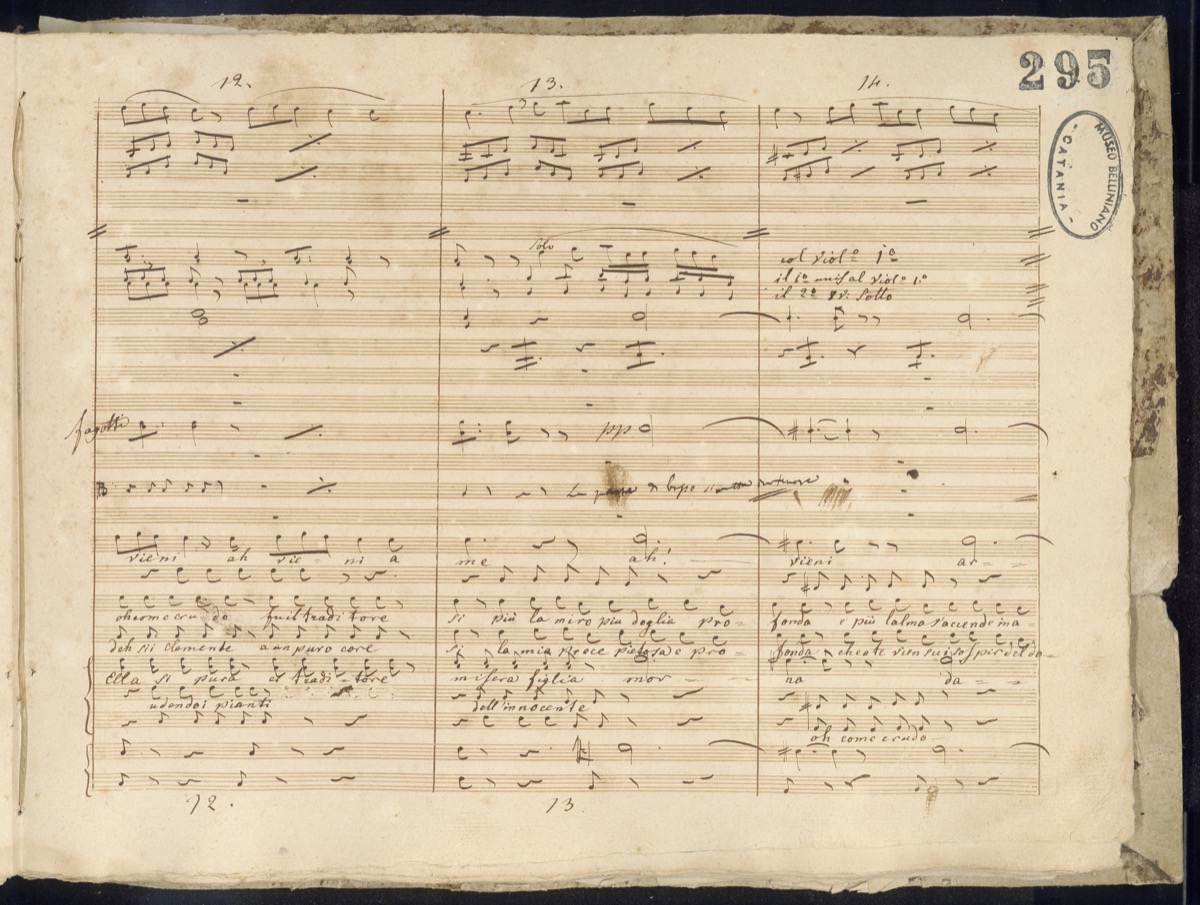 295
MUSEO BELLINIANO
- CATANIA -
12. 13. 14.
Solo
col viol.º 1º
il 1º unis al viol.º 1º
il 2º 8ª: sotto
fagotti pp
vieni ah vie - ni a me ah! vieni ar - -
oh come cru do fu il traditore si più la miro piu doglia pro - fonda e più l'alma s'accende ma -
deh sii clemente a un puro core si la mia proce pietosa e pro - fonda
Ella si pura el tradi - tore misera figlia mor - - ra da - -
udendo i pianti dell'innocente
oh come crudo
12. 13